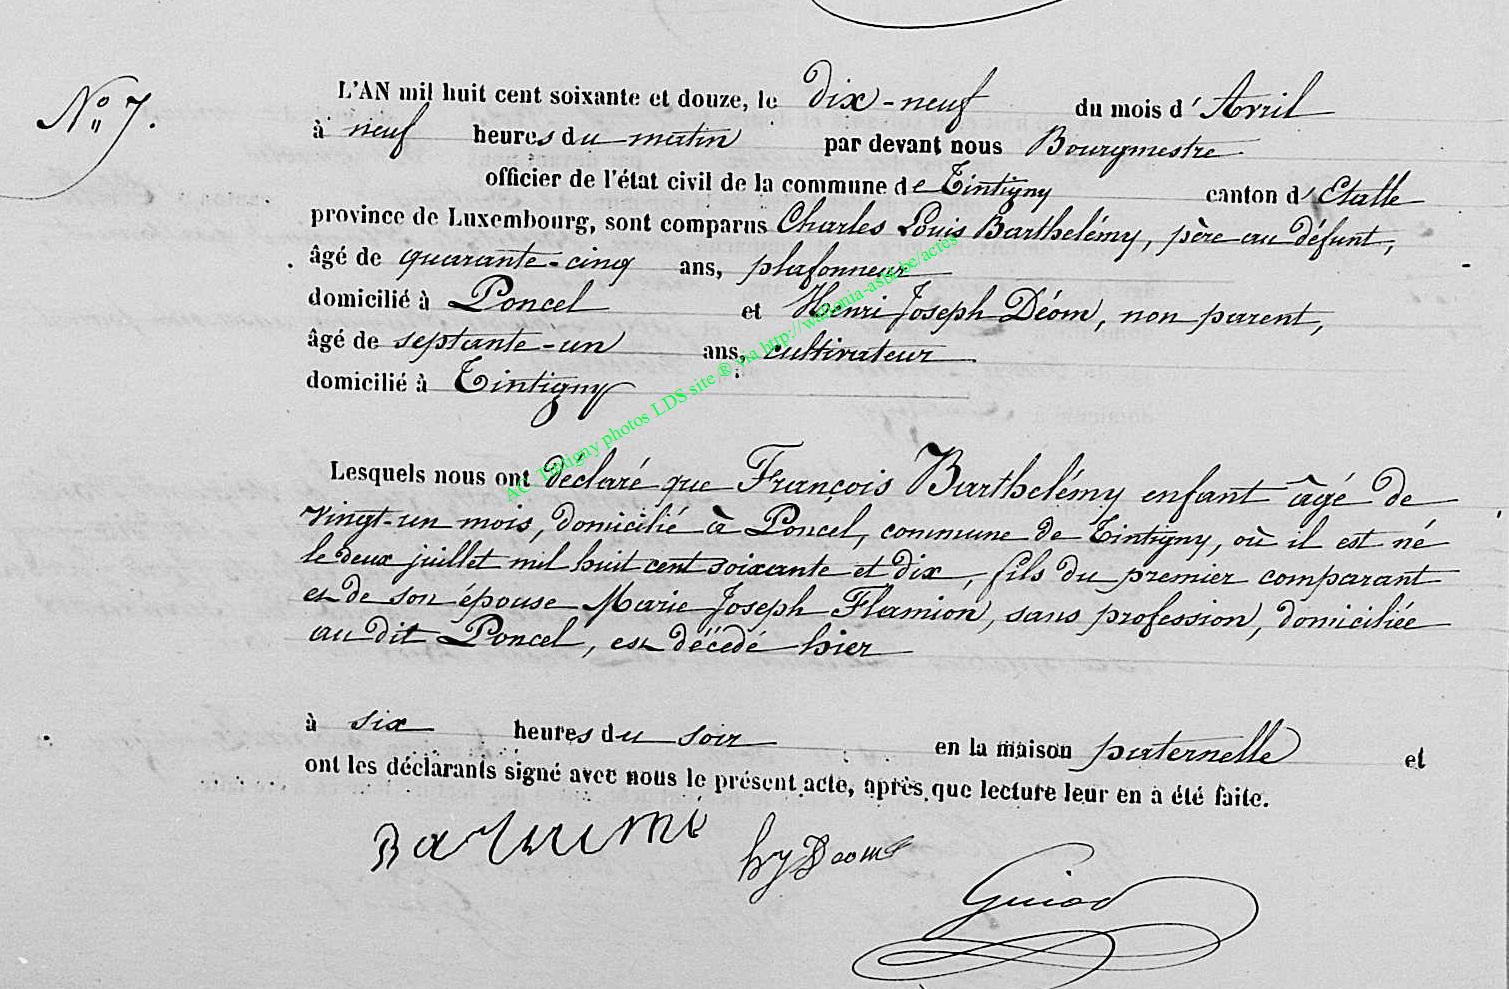 N° 7.
L'AN mil huit cent soixante et douze, le dix-neuf du mois d'Avril
à neuf heures du matin par devant nous Bourgmestre
officier de l'état civil de la commune de Tintigny canton d'Etalle
province de Luxembourg, sont comparus Charles Louis Barthelémy, père au défunt,
âgé de quarante-cinq ans, plafonneur
domicilié à Poncel et Henri Joseph Déom, non parent,
âgé de septante-un ans, cultivateur
domicilié à Tintigny
AC Tintigny photos LDS site ® via http://wallonia-asbl.be/actes
Lesquels nous ont déclaré que François Barthelémy enfant âgé de
vingt-un mois, domicilié à Poncel, commune de Tintigny, où il est né
le deux juillet mil huit cent soixante et dix, fils du premier comparant
et de son épouse Marie Joseph Flamion, sans profession, domiciliée
au dit Poncel, est décédé hier
à six heures du soir en la maison paternelle et
ont les déclarants signé avec nous le présent acte, après que lecture leur en a été faite.
hjDeom